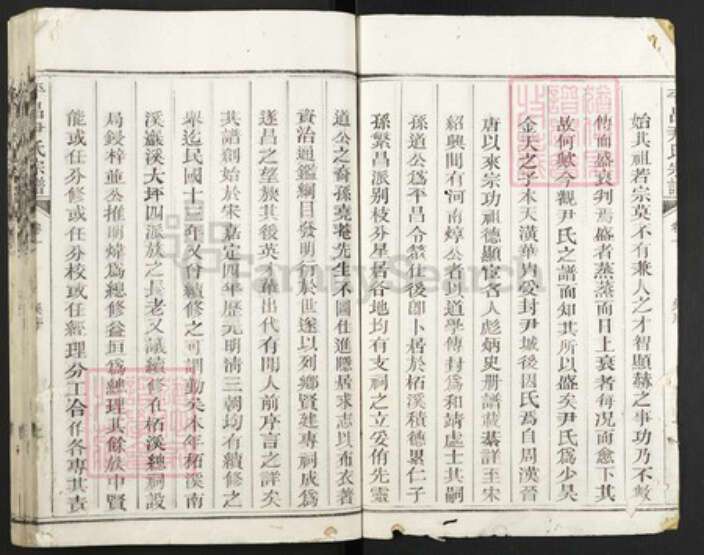 始其祖若宗莫不有兼人之才智顯赫之事功乃不數
傳而盛衰判焉盛者蒸蒸而日上衰者每况而愈下其
故何歟今觀尹氏之譜而知其所以盛矣尹氏爲少昊
金天之子木天潢華冑受封尹城後因氏焉自周漢晉
唐以來宗功祖德顯宦名人彪炳史册譜載綦詳至宋
紹興間有河南焞公者以道學傳封爲和靖處士其嗣
孫道公爲平昌令緊任後卽卜居於栢溪積德累仁子
孫繁昌派别枝分星居各地均有支祠之立妥侑先靈
道公之裔孫堯菴先生不圖仕進隱居求志以布衣著
資治通鑑綱目發明行於世遂以列鄉賢建專祠成爲
遂昌之望族其後英才輩出代有聞人前序言之詳矣
其譜創始於宋嘉定四年歷元明淸三朝均有續修之
舉迄民國十三年又曾續修之可謂勤矣本年栢溪南
溪巖溪大坪四派族之長老又議續修在栢溪總祠設
局鋟梓並公推明煒爲總修益垣爲總理其餘族中賢
能或任分修或任分校或任經理分工合作各專其責
平昌尹氏宗譜
卷一
平昌尹氏宗譜
卷一
FamilySearch